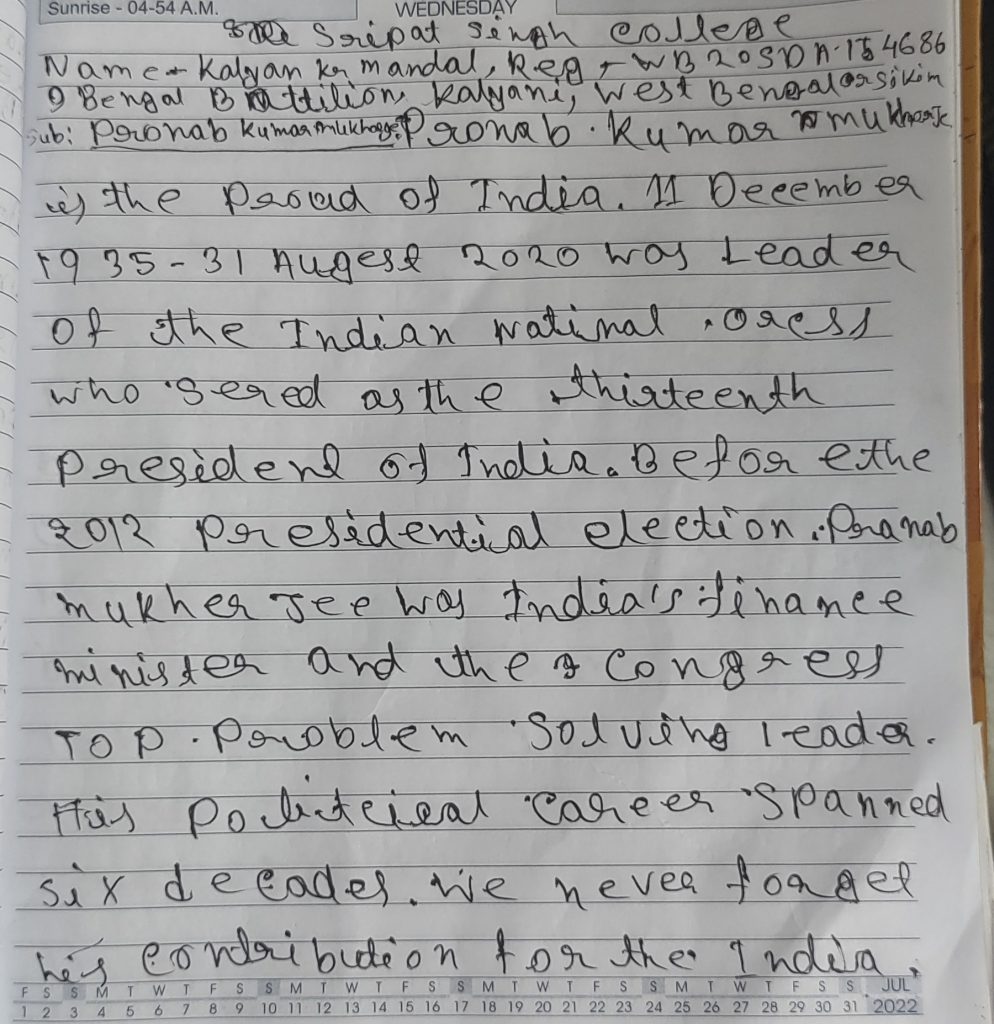 Sunrise - 04-54 A.M.
WEDNESDAY
Sripat Singh College
Name - Kalyan kr mandal, Reg - WB20SDA154686
9 Bengal Battilion, Kalyani, West Bengal or sikim
Sub: Pronab Kumar Mukharjee Pronab. Kumar mukharje
is the Proud of India. 11 December
1935-31 Augest 2020 was Leader
of the Indian natinal .oress
who sered as the thirteenth
president of India. Befor ethe
2012 presidential election. Pranab
mukher Jee was India's finance
minister and the Congress
TOP. Problem Solving leader.
His Politeical Career Spanned
six decades. We never forget
his contribution for the India.
F S S M T W T F S S M T W T F S S M T W T F S S M T W T F S S JUL
1 2 3 4 5 6 7 8 9 10 11 12 13 14 15 16 17 18 19 20 21 22 23 24 25 26 27 28 29 30 31 2022